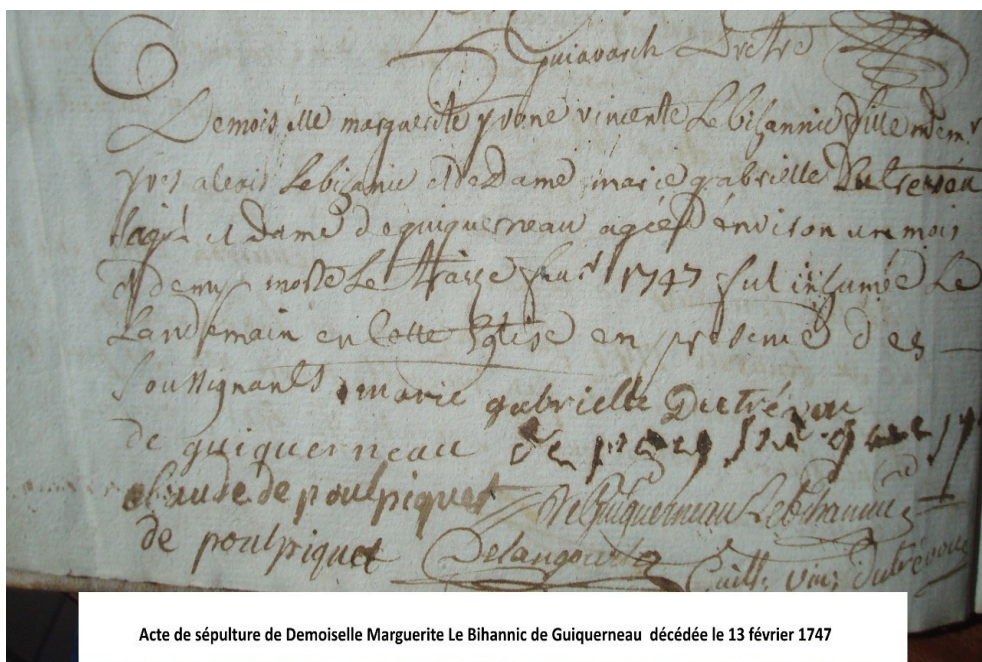 guiavarch Pretre
Demois,elle marguerite yvone vincente Lebihannic fille de m.r
yves alexis Lebihanic et de Dame marie gabrielle Dutrevou
et Dame deguiquerneau agée d'environ un mois
et demy morte Le traize 1747 fut inhumée Le
Landemain en Cette Eglise en presence des
Soussignants marie gabrielle Dutrévou
de guiquerneau
claude de poulpiquet
DeGuiquerneau Lebihannic
de poulpiquet Delangourla
Guill: vin: dutrévou
Acte de sépulture de Demoiselle Marguerite Le Bihannic de Guiquerneau décédée le 13 février 1747